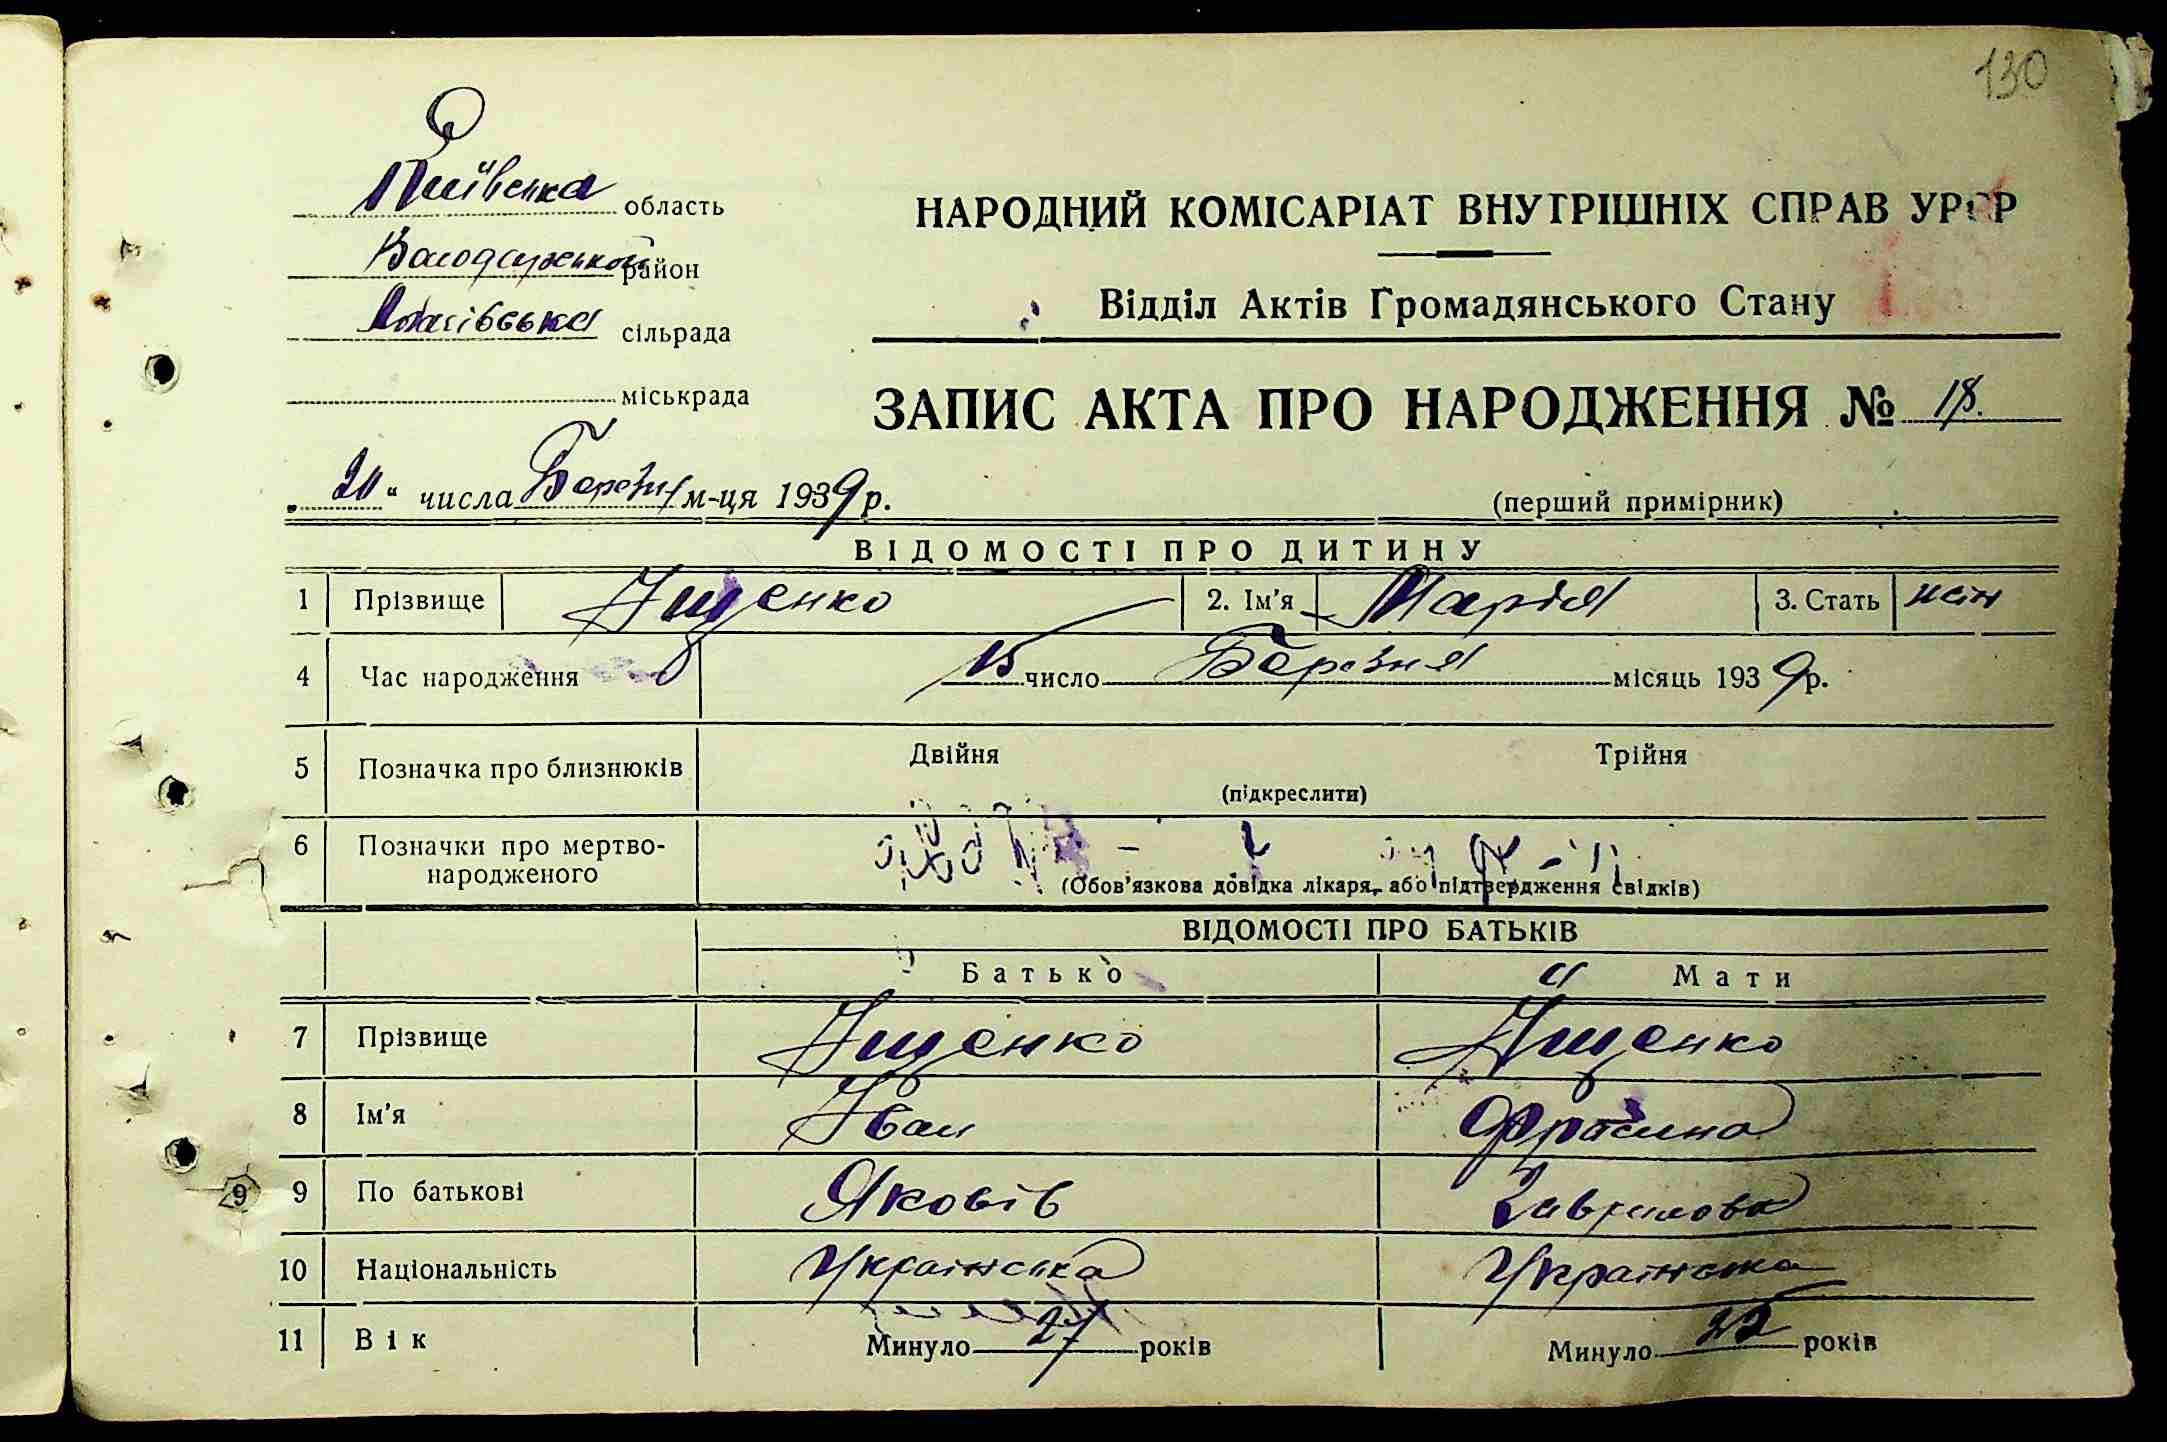 130
Київська область
Володарський район
сільрада
міськрада
НАРОДНИЙ КОМІСАРІАТ ВНУТРІШНІХ СПРАВ УРСР
Відділ Актів Громадянського Стану
ЗАПИС АКТА ПРО НАРОДЖЕННЯ № 18.
„20“ числа Березня м-ця 1939 р.
(перший примірник)
ВІДОМОСТІ ПРО ДИТИНУ
1 Прізвище Іщенко 2. Ім'я Марія 3. Стать жін
4 Час народження 15 число Березня місяць 1939 р.
5 Позначка про близнюків Двійня Трійня
(підкреслити)
6 Позначки про мертво-
народженого
(Обов'язкова довідка лікаря, або підтвердження свідків)
ВІДОМОСТІ ПРО БАТЬКІВ
Батько Мати
7 Прізвище Іщенко Іщенко
8 Ім'я Іван Фросина
9 9 По батькові Яковів Гаврилова
10 Національність Українська Українська
11 Вік Минуло 27 років Минуло 22 років